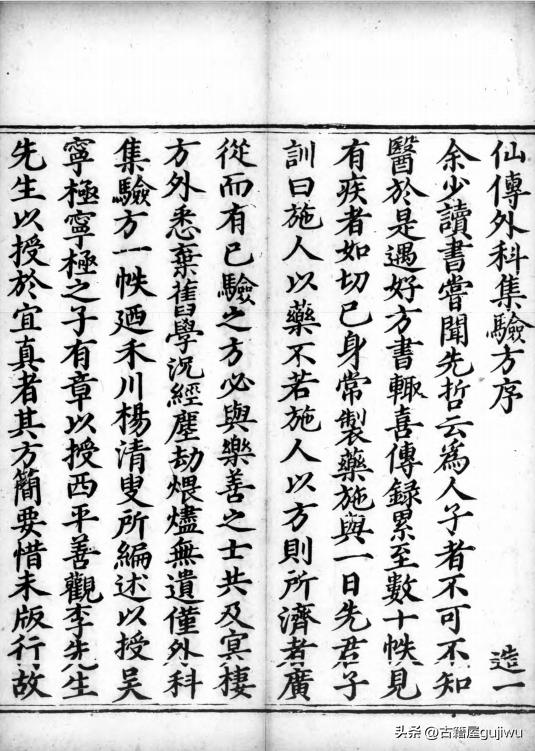 仙傳外科集驗方序 造一
余少讀書嘗聞先哲云為人子者不可不知
醫於是遇好方書輙喜傳録累至數十帙見
有疾者如切已身常製藥施與一日先君子
訓曰施人以藥不若施人以方則所濟者廣
從而有已驗之方必與樂善之士共及寘棲
方外悉棄舊學況經塵劫煨燼無遺僅外科
集驗方一帙廼禾川楊清叟所編述以授吳
寧極寧極之子有章以授西平善觀李先生
先生以授於宜真者其方簡要惜未版行故
头条 @古籍屋gujiwu